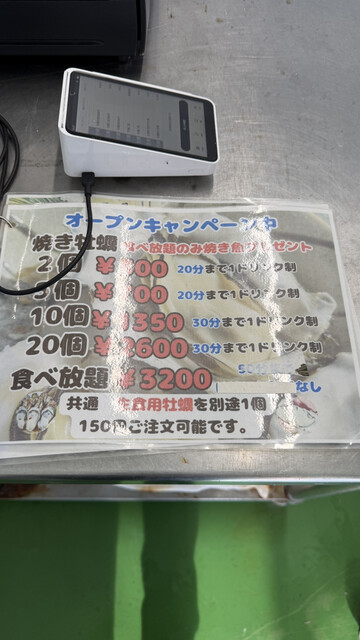 オープンキャンペーン中
焼き牡蠣 食べ放題のみ焼き魚プレゼント
2個 00 20分まで1ドリンク制
00 20分まで1ドリンク制
10個 ¥1350 30分まで1ドリンク制
20個 ¥2600 30分まで1ドリンク制
食べ放題 ¥3200 なし
共通 生食用牡蠣を別途1個
150円ご注文可能です。